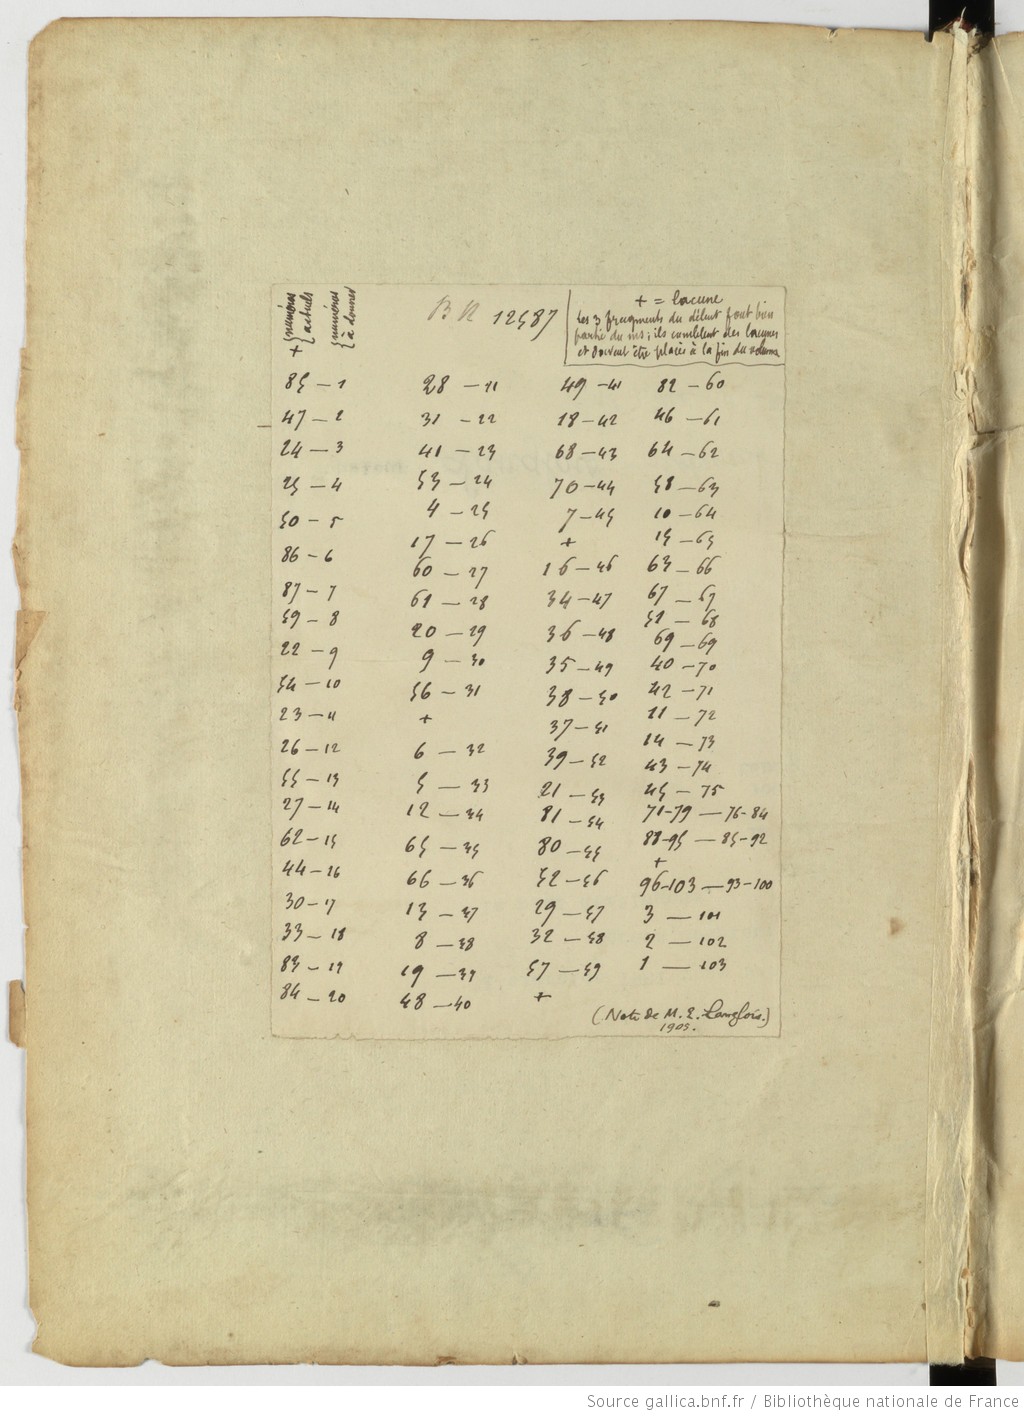 + { numéros
{ actuels
{ numéros
{ à donner
BN 12587
+ = lacune
Les 3 fragments du début font bien
partie du ms; ils comblent des lacunes
et doivent être placés à la fin du volume
85 — 1
47 — 2
24 — 3
25 — 4
50 — 5
86 — 6
87 — 7
59 — 8
22 — 9
54 — 10
23 — 11
26 — 12
55 — 13
27 — 14
62 — 15
44 — 16
30 — 17
33 — 18
83 — 19
84 — 20
28 — 21
31 — 22
41 — 23
53 — 24
4 — 25
17 — 26
60 — 27
61 — 28
20 — 29
9 — 30
56 — 31
+
6 — 32
5 — 33
12 — 34
65 — 35
66 — 36
13 — 37
8 — 38
19 — 39
48 — 40
49 — 41
18 — 42
68 — 43
70 — 44
7 — 45
+
16 — 46
34 — 47
36 — 48
35 — 49
38 — 50
37 — 51
39 — 52
21 — 53
81 — 54
80 — 55
52 — 56
29 — 57
32 — 58
57 — 59
+
82 — 60
46 — 61
64 — 62
58 — 63
10 — 64
15 — 65
63 — 66
67 — 67
51 — 68
69 — 69
40 — 70
42 — 71
11 — 72
14 — 73
43 — 74
45 — 75
71-79 — 76-84
88-95 — 85-92
+
96-103 — 93-100
3 — 101
2 — 102
1 — 103
(Note de M. E. Langlois.)
1905.
Source gallica.bnf.fr / Bibliothèque nationale de France